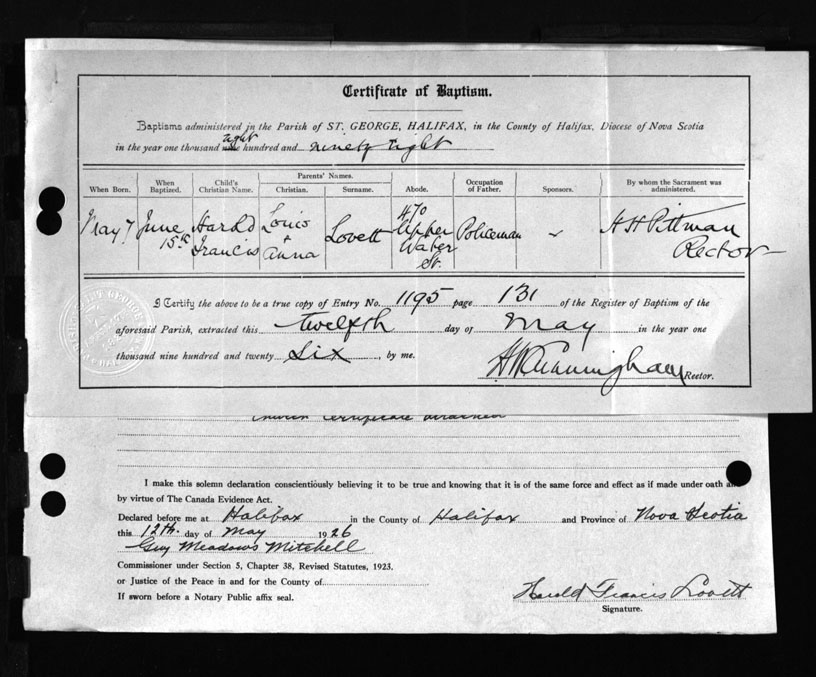 Certificate of Baptism.
Baptisms administered in the Parish of ST. GEORGE, HALIFAX, in the County of Halifax, Diocese of Nova Scotia
eight
in the year one thousand nine hundred and ninety eight
When Born. When Baptized. Child's Christian Name. Parents' Names. Christian. Surname. Abode. Occupation of Father. Sponsors. By whom the Sacrament was administered.
May 7 June 15th Harold Francis Louis + Anna Lovett 470 Upper Water St. Policeman H H Pittman Rector
I Certify the above to be a true copy of Entry No. 1195 page 131 of the Register of Baptism of the
aforesaid Parish, extracted this twelfth day of May in the year one
thousand nine hundred and twenty six, by me. H W Cunningham Rector.
Church Certificate attached
I make this solemn declaration conscientiously believing it to be true and knowing that it is of the same force and effect as if made under oath an
by virtue of The Canada Evidence Act.
Declared before me at Halifax in the County of Halifax and Province of Nova Scotia
this 12th. day of May 1926
Guy Meadows Mitchell
Commissioner under Section 5, Chapter 38, Revised Statutes, 1923.
or Justice of the Peace in and for the County of
If sworn before a Notary Public affix seal.
Harold Francis Lovett
Signature.